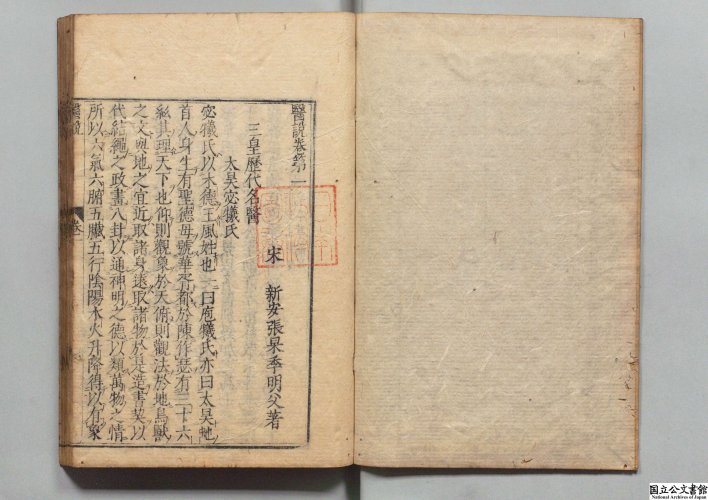 醫説卷第一
宋 新安張杲季明父著
三皇歷代名醫
太昊宓犧氏
宓犧氏以木德王風姓也一曰庖犧氏亦曰太昊虵
首人身生有聖德母號華胥都於陳作瑟有三十六
絃其理天下也仰則觀象於天俯則觀法於地鳥獸
之文與地之宜近取諸身遠取諸物於是造書契以
代結繩之政畫八卦以通神明之德以類萬物之情
所以六氣六腑五臟五行陰陽水火升降得以有象
醫説 卷一
国立公文書館
National Archives of Japan